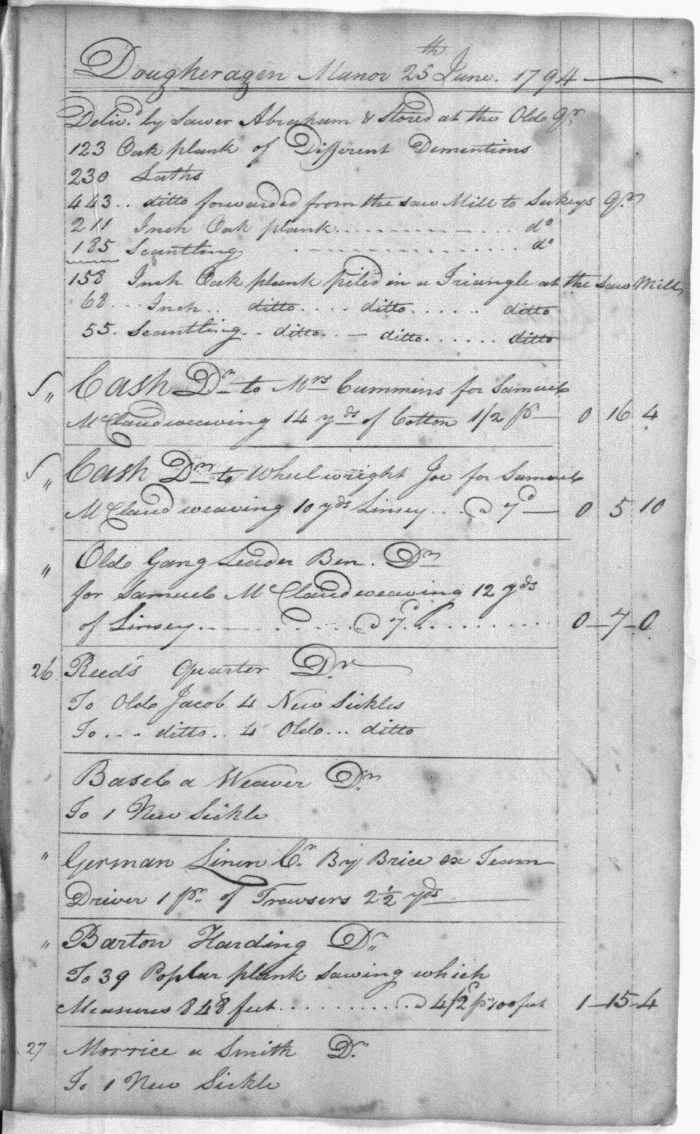 Dougheragen Manor 25th June. 1794
Deliv.d by Sawer Abraham & Stored at the Olde Qr.
123 Oak plank of Different Dementions
230 Laths
443.. ditto forwarded from the Saw Mill to Sukeys Qr.
211 Inch Oak plank............... do
185 Scantling .................. do
158 Inch Oak plank piled in a Triangle at the Saw Mill
68... Inch.. ditto.... ditto...... ditto
55. Scantling.. ditto.. — ditto...... ditto
Cash Dr. to Mrs Cummins for Samuel
McClaud weaving 14 yds of Cotton 1/2 pr — 0 16 4
" Cash Dr. to Wheelwright Joe for Samuel
McClaud weaving 10 yds Linsey... @ 7d — 0 5 10
" Olde Gang Leader Ben. Dr.
for Samuel McClaud weaving 12 yds
of Linsey.......... @ 7d. .......... 0—7—0
26 Reed's Quarter Dr
To Olde Jacob 4 New Sickles
To... ditto.. 4 Olde... ditto
Baseb a Weaver Dr.
To 1 New Sickle
" German Linen Cr. By Brice ox Team
Driver 1 pr. of Trowsers 2 1/2 yds
" Barton Harding Dr.
To 39 Poplar plank Sawing which
Measures 848 feet.......... @ 4/2 pr 100 feet 1—15—4
27 Morrice a Smith Dr.
To 1 New Sickle